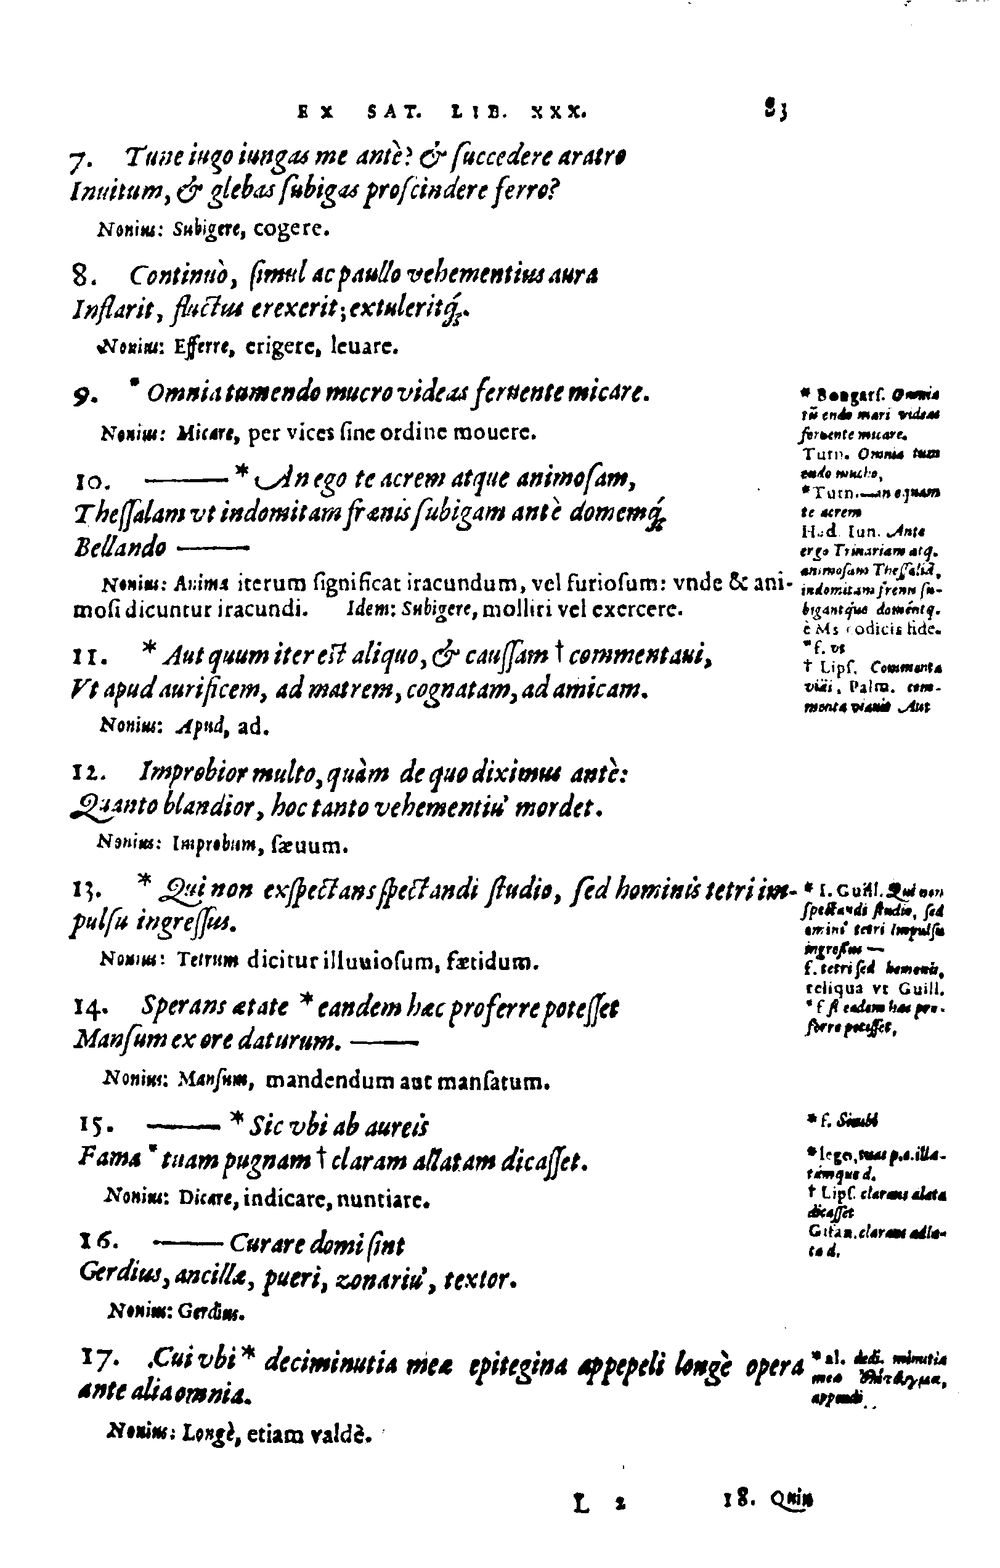 EX SAT. LIB. XXX. 83
7. Tune iugo iungas me antè? & ſuccedere aratro
Inuitum, & glebas ſubigas proſcindere ferro?
Nonius: Subigere, cogere.
8. Continuò, ſimul ac paullo vehementius aura
Inflarit, fluctus erexerit; extuleritq́;.
Nonius: Efferre, erigere, leuare.
9. * Omnia tamendo mucro videas feruente micare.
Nonius: Micare, per vices ſine ordine mouere.
10. ——— * An ego te acrem atque animoſam,
Theſſalam vt indomitam frænis ſubigam antè domemq́;
Bellando ———
Nonius: Anima iterum ſignificat iracundum, vel furioſum: vnde & ani-
moſi dicuntur iracundi. Idem: Subigere, molliri vel exercere.
11. * Aut quum iter eſt aliquo, & cauſſam † commentaui,
Vt apud aurificem, ad matrem, cognatam, ad amicam.
Nonius: Apud, ad.
12. Improbior multo, quàm de quo diximus antè:
Quanto blandior, hoc tanto vehementiu' mordet.
Nonius: Improbum, ſæuum.
13. * Qui non exſpectans ſpectandi ſtudio, ſed hominis tetri im-
pulſu ingreſſus.
Nonius: Tetrum dicitur illuuioſum, fætidum.
14. Sperans ætate * eandem hæc proferre poteſſet
Manſum ex ore daturum. ———
Nonius: Manſum, mandendum aut manſatum.
15. ——— * Sic vbi ab aureis
Fama * tuam pugnam † claram allatam dicaſſet.
Nonius: Dicare, indicare, nuntiare.
16. ——— Curare domi ſint
Gerdius, ancillæ, pueri, zonariu', textor.
Nonius: Gerdius.
17. Cui vbi * deciminutia meæ epitegina appepeli longè opera
ante alia omnia.
Nonius: Longè, etiam valdè.
L 2 18. Quin
* Bongarſ. Omnia
tū endo mari videas
feruente micare.
Turn. Omnia tum
endo mucho,
* Turn.—an equam
te acrem
Had. Iun. Ante
ergo Trinariam atq.
animoſam Theſſalid,
indomitam frenu ſu-
bigantque domentq.
è Ms codicis fide.
* f. vt
† Lipſ. Commenta
viai, Palm. com-
menta vianit Aut
* I. Guill. Qui non
ſpectandi ſtudio, ſed
omini' tetri impulſu
ingreſſus —
f. tetri ſed hominis,
reliqua vt Guill.
* f. ſi eadem hæc pro-
ferre potiſſet,
* f. Sicubi
* lego, tuas p.a. illa-
tamque d.
† Lipſ. clarans alata
dicaſſet
Gifan. claram adla-
ta d.
* al. dedi. minutia
mea
appendi